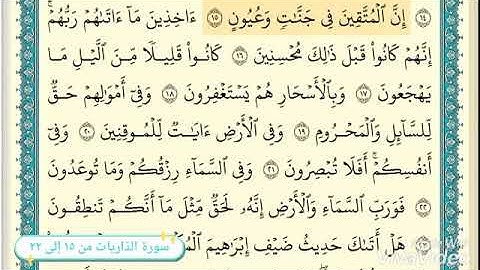 ١٤ إِنَّ ٱلْمُتَّقِينَ فِى جَنَّـٰتٍ وَعُيُونٍ ١٥ ءَاخِذِينَ مَآ ءَاتَىٰهُمْ رَبُّهُمْ ۚ
إِنَّهُمْ كَانُوا۟ قَبْلَ ذَٰلِكَ مُحْسِنِينَ ١٦ كَانُوا۟ قَلِيلًا مِّنَ ٱلَّيْلِ مَا
يَهْجَعُونَ ١٧ وَبِٱلْأَسْحَارِ هُمْ يَسْتَغْفِرُونَ ١٨ وَفِىٓ أَمْوَٰلِهِمْ حَقٌّ
لِّلسَّآئِلِ وَٱلْمَحْرُومِ ١٩ وَفِى ٱلْأَرْضِ ءَايَـٰتٌ لِّلْمُوقِنِينَ ٢٠ وَفِىٓ
أَنفُسِكُمْ ۚ أَفَلَا تُبْصِرُونَ ٢١ وَفِى ٱلسَّمَآءِ رِزْقُكُمْ وَمَا تُوعَدُونَ
٢٢ فَوَرَبِّ ٱلسَّمَآءِ وَٱلْأَرْضِ إِنَّهُۥ لَحَقٌّ مِّثْلَ مَآ أَنَّكُمْ تَنطِقُونَ
هَلْ أَتَىٰكَ حَدِيثُ ضَيْفِ إِبْرَٰهِيمَ
سورة الذاريات من ١٥ إلى ٢٢
VivaVideo